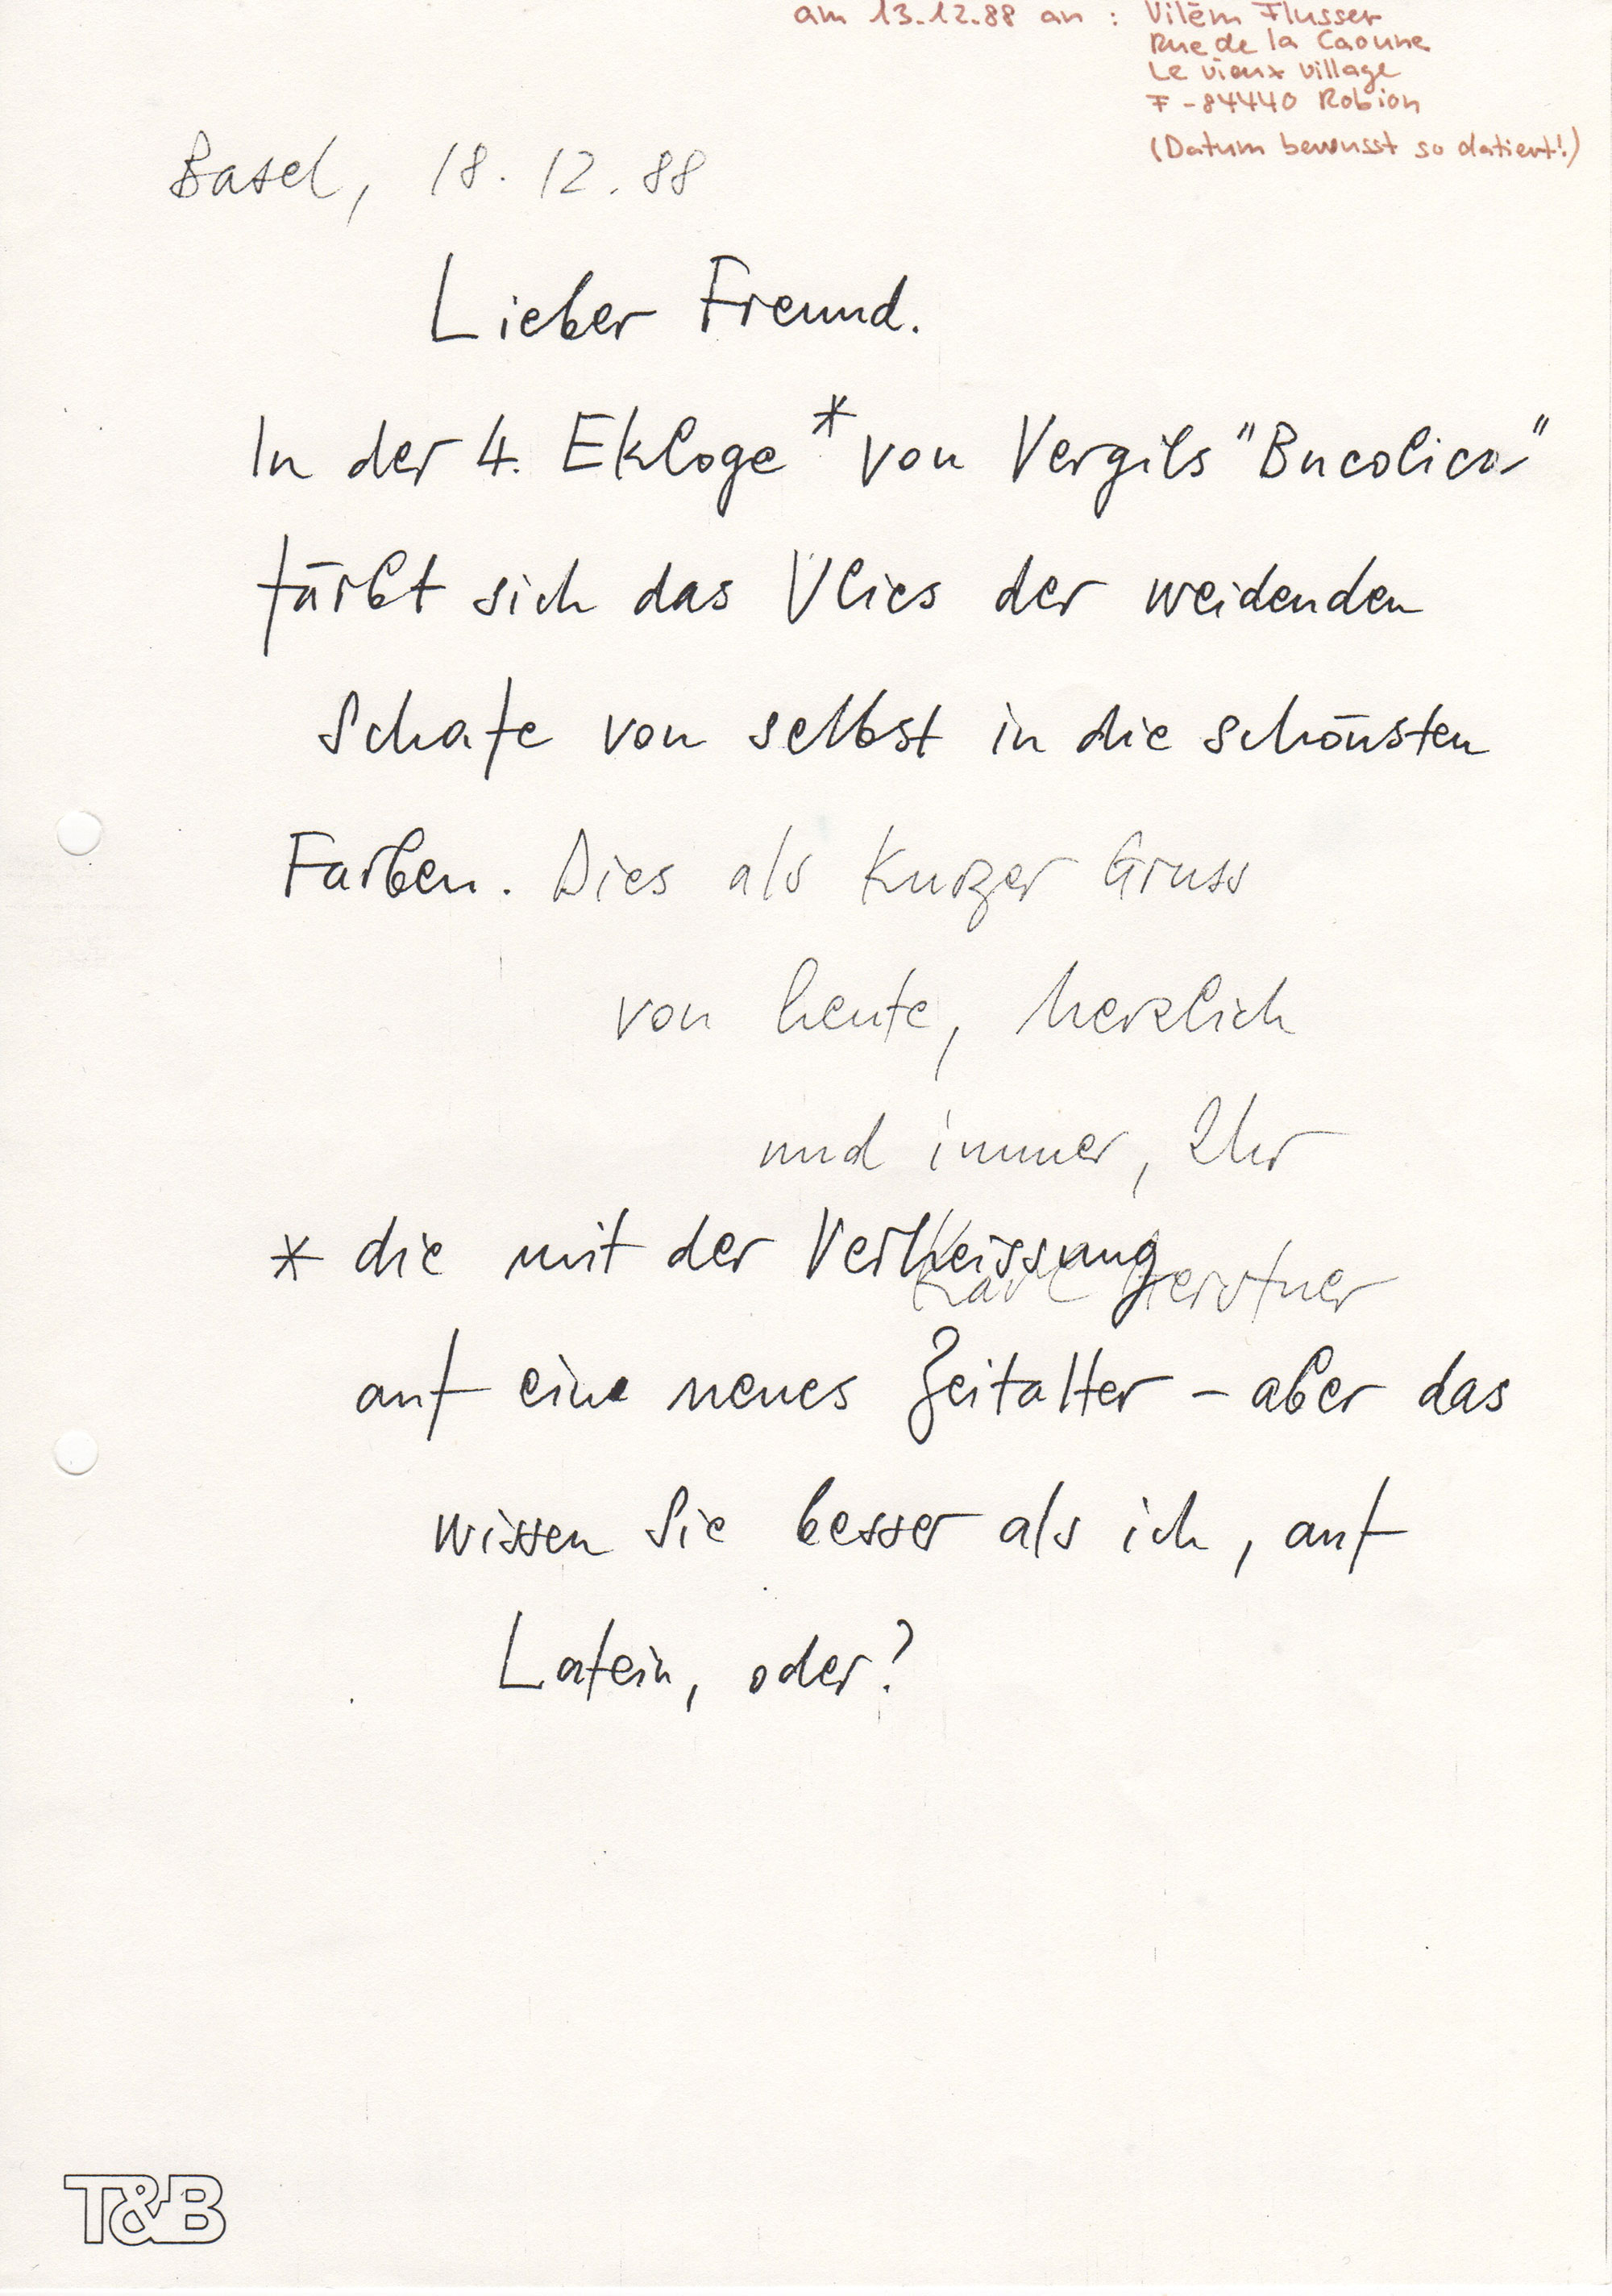 am 13.12.88 an : Vilém Flusser
Rue de la Caoune
Le vieux village
F - 84440 Robion
(Datum bewusst so datiert!)
Basel, 18.12.88
Lieber Freund.
In der 4. Ekloge * von Vergils "Bucolica"
färbt sich das Vlies der weidenden
Schafe von selbst in die schönsten
Farben. Dies als kurzer Gruss
von heute, herzlich
und immer, Ihr
Karl Gerstner
* die mit der Verheissung
auf ein neues Zeitalter – aber das
wissen Sie besser als ich, auf
Latein, oder?
T&B